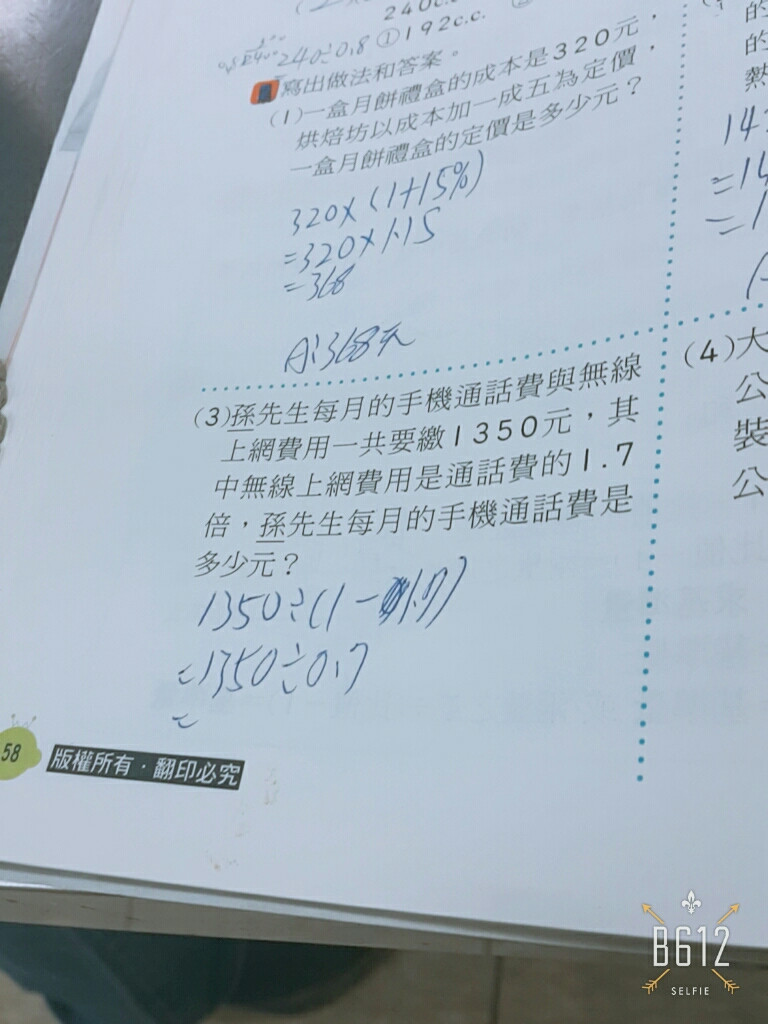 240c.c.
240÷0.8 ①192c.c.
寫出做法和答案。
(1)一盒月餅禮盒的成本是320元，
烘焙坊以成本加一成五為定價，
一盒月餅禮盒的定價是多少元？
320×(1+15%)
=320×1.15
=368
A:368元
(3)孫先生每月的手機通話費與無線
上網費用一共要繳1350元，其
中無線上網費用是通話費的1.7
倍，孫先生每月的手機通話費是
多少元？
1350÷(1-1.7)
=1350÷0.7
=
的
的
熱
14
=14
=1
(4)大
公
裝
公
58
版權所有·翻印必究
B612
SELFIE